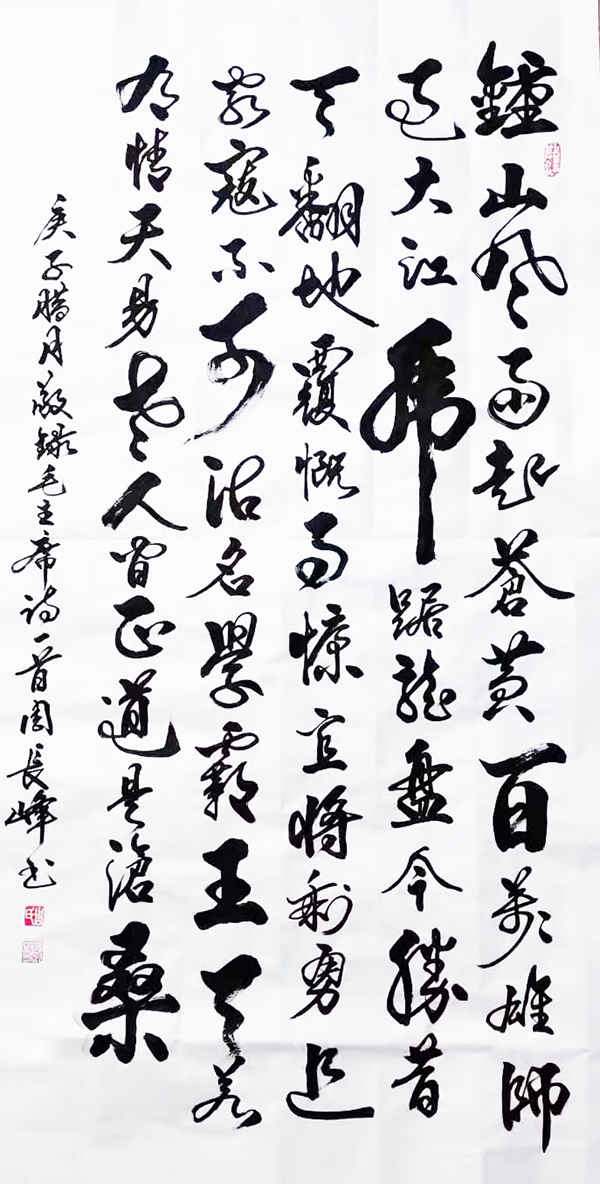 鍾山風雨起蒼黃百萬雄師
過大江虎踞龍盤今勝昔
天翻地覆慨而慷宜將剩勇追
窮寇不可沽名學霸王天若
有情天易老人間正道是滄桑
庚子臘月敬錄毛主席詩一首周長峰书